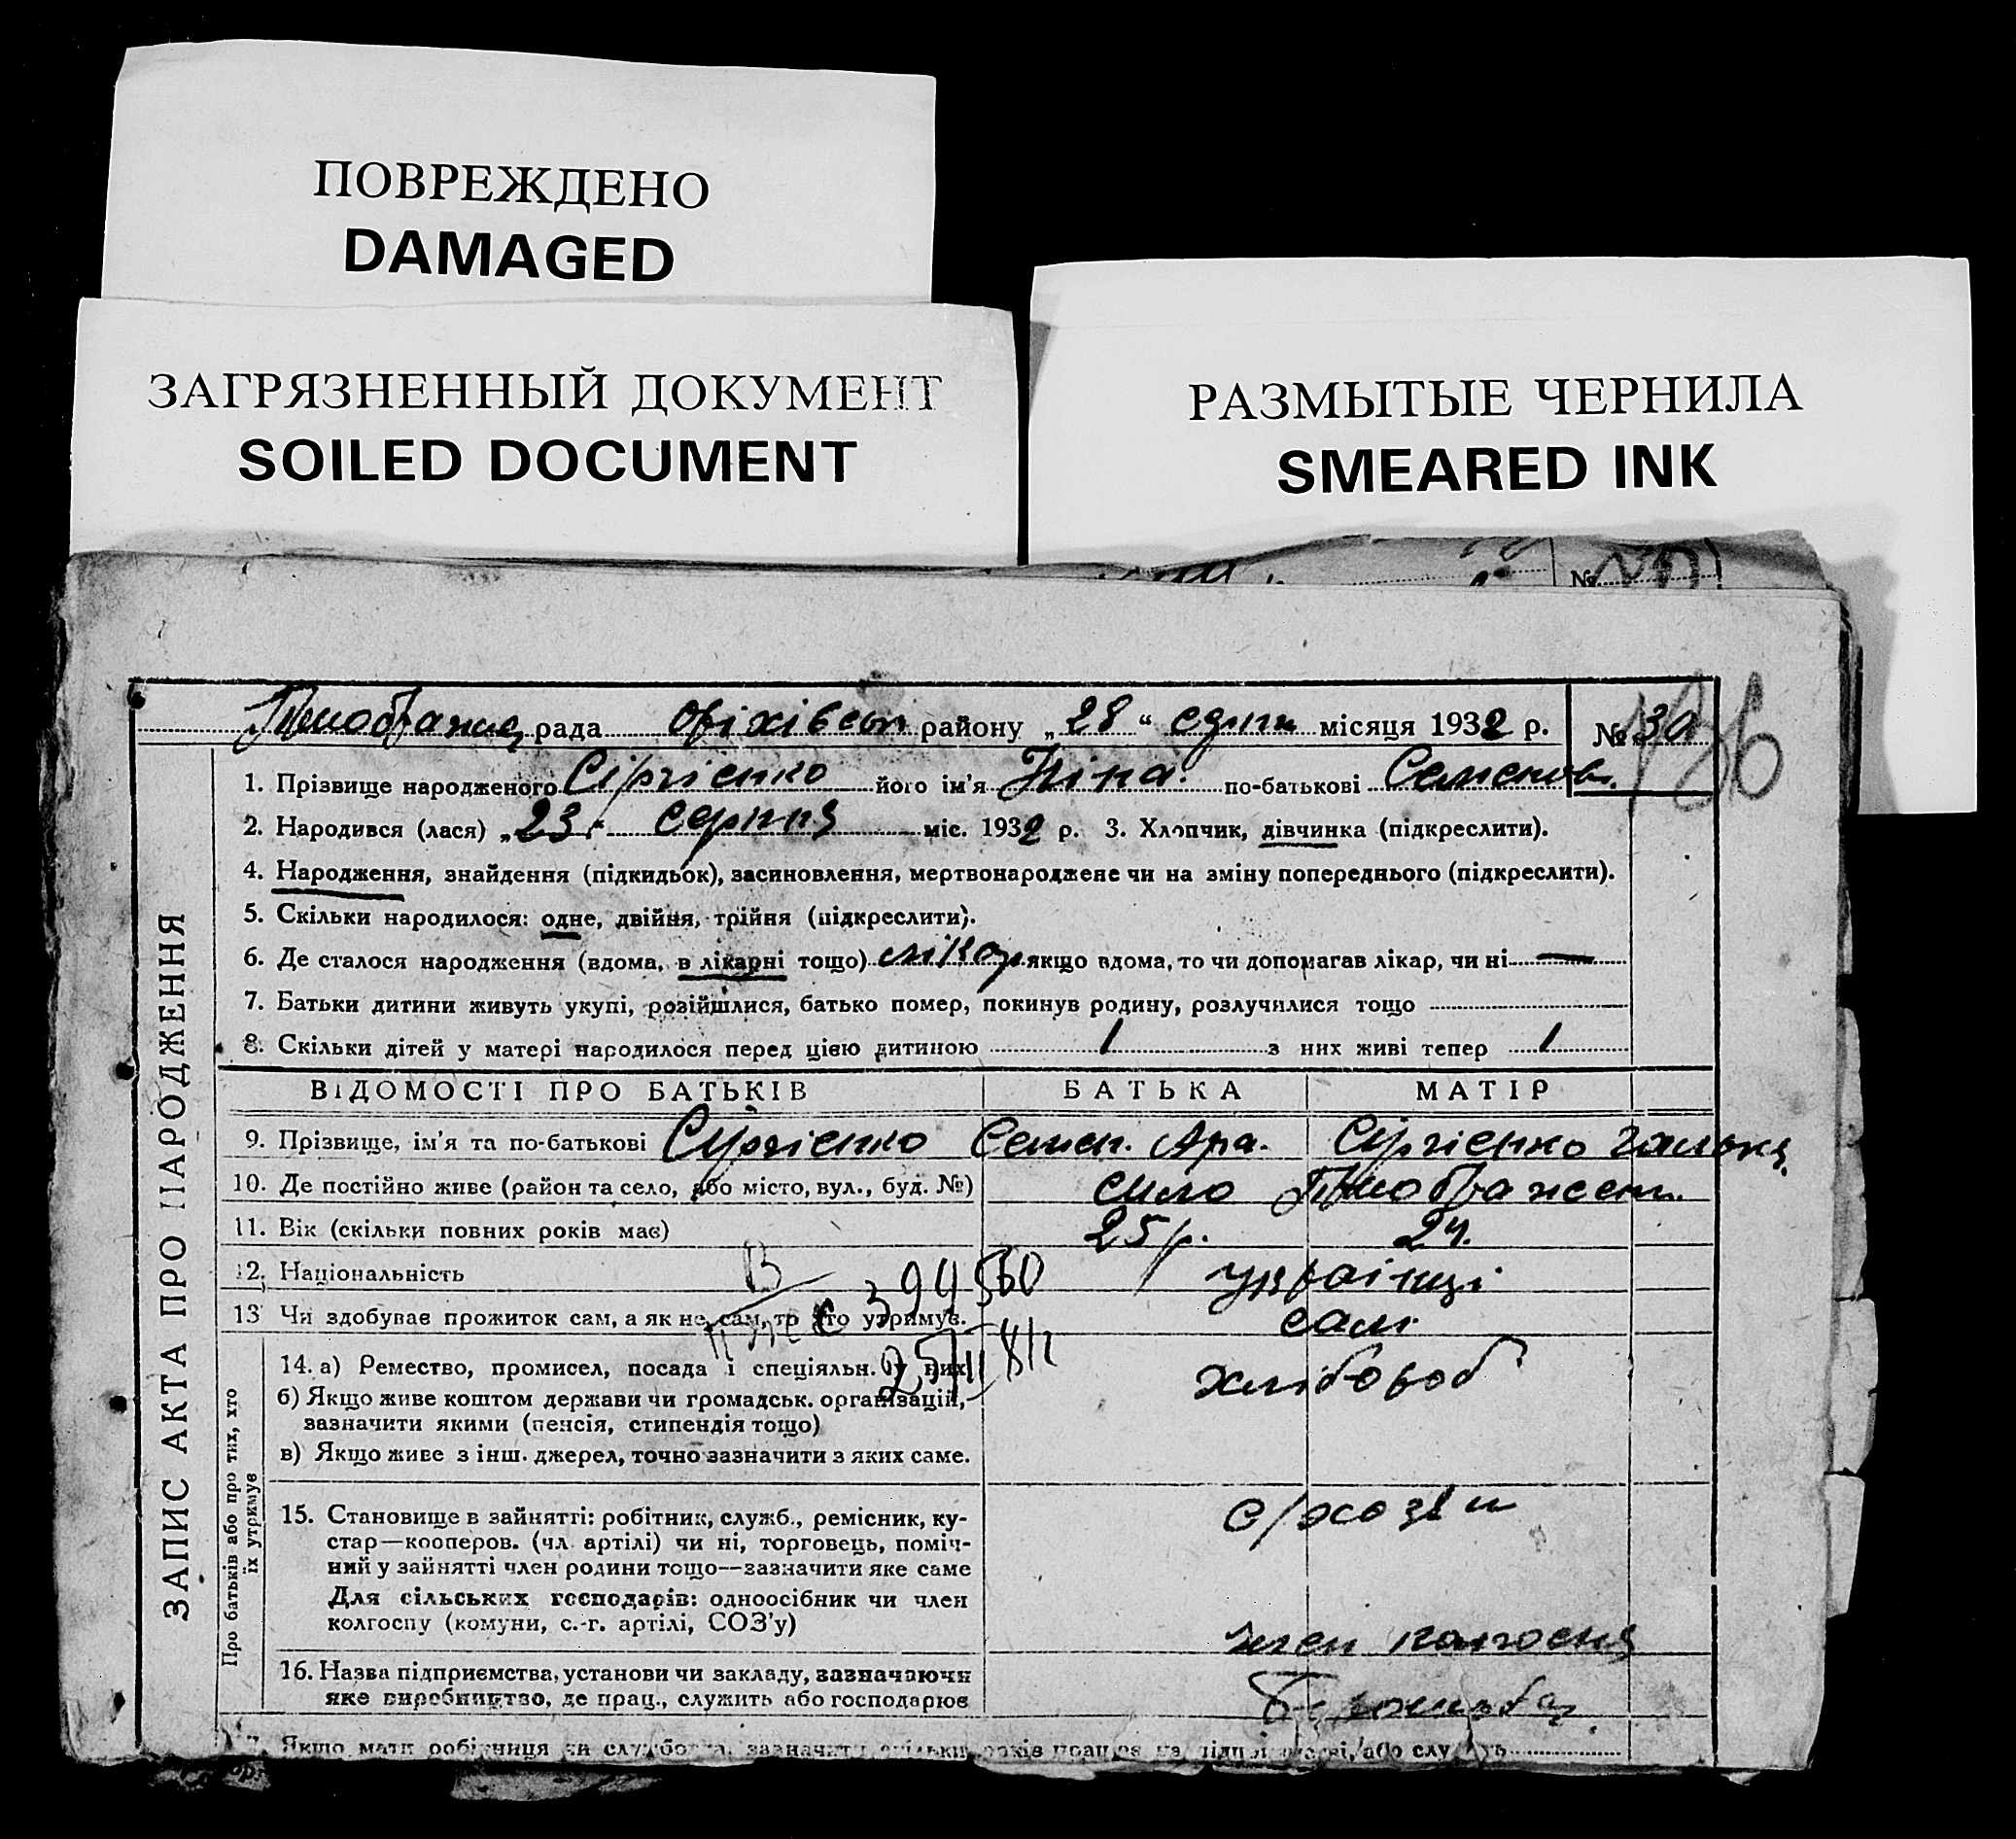 ПОВРЕЖДЕНО
DAMAGED
ЗАГРЯЗНЕННЫЙ ДОКУМЕНТ
SOILED DOCUMENT
РАЗМЫТЫЕ ЧЕРНИЛА
SMEARED INK
№
рада Оріхівськ району „28“ серпн місяця 1932 р. № 30
136
ЗАПИС АКТА ПРО НАРОДЖЕННЯ
1. Прізвище народженого Сіргієнко його ім'я Ніна по-батькові Семенов.
2. Народився (лася) „23“ серпня міс. 1932 р. 3. Хлопчик, дівчинка (підкреслити).
4. Народження, знайдення (підкидьок), засиновлення, мертвонароджене чи на зміну попереднього (підкреслити).
5. Скільки народилося: одне, двійня, трійня (підкреслити).
6. Де сталося народження (вдома, в лікарні тощо) якщо вдома, то чи допомагав лікар, чи ні —
7. Батьки дитини живуть укупі, розійшлися, батько помер, покинув родину, розлучилися тощо
8. Скільки дітей у матері народилося перед цією дитиною 1 з них живі тепер 1
ВІДОМОСТІ ПРО БАТЬКІВ БАТЬКА МАТІР
9. Прізвище, ім'я та по-батькові Сіргієнко Семен. Сіргієнко
10. Де постійно живе (район та село, або місто, вул., буд. №) село
11. Вік (скільки повних років має) 25 р. 24.
12. Національність українці
13 Чи здобував прожиток сам, а як не сам, то хто утримує. самі
Про батьків або про тих, хто їх утримує
14. а) Ремество, промисел, посада і спеціяльн. у них хлібороб
б) Якщо живе коштом держави чи громадськ. організацій,
зазначити якими (пенсія, стипендія тощо)
в) Якщо живе з інш. джерел, точно зазначити з яких саме.
15. Становище в зайнятті: робітник, служб., ремісник, ку-
стар—кооперов. (чл. артілі) чи ні, торговець, поміч-
ний у зайнятті член родини тощо—зазначити яке саме
Для сільських господарів: одноосібник чи член
колгоспу (комуни, с.-г. артілі, СОЗ'у) член колгоспу
16. Назва підприємства, установи чи закладу, зазначаючи
яке виробництво, де прац., служить або господарює
Якщо мати робітниця чи службовка, зазначити скільки років працює на підприємстві, або служить